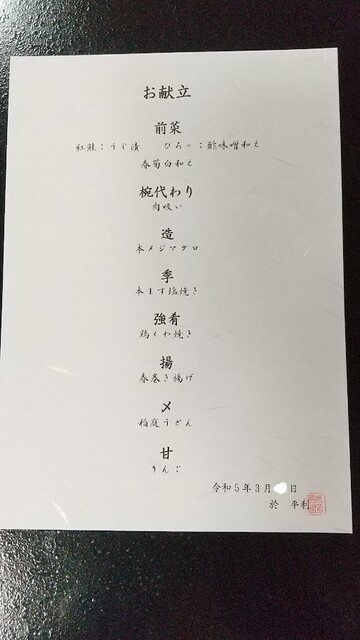 お献立
前菜
紅鮭こうじ漬　ひろっこ酢味噌和え
春菊白和え
椀代わり
肉吸い
造
本メジマグロ
季
本ます塩焼き
強肴
鶏くわ焼き
揚
春巻き揚げ
〆
稲庭うどん
甘
りんご
令和５年３月 日
於　平利